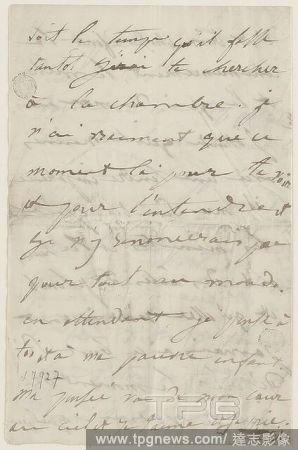 soit le temps qu'il fasse
tantôt j'irai te chercher
à la chambre. je
n'ai vraiment que ce
moment là pour te voir
et pour t'entendre et
je n'y renoncerais pas
pour tout au monde.
en attendant je pense à
toi et à ma pauvre enfant.
17927
ma pensée va de mon cœur
au ciel et je t'aime
TPG
www.tpgnews.com / 達志影像